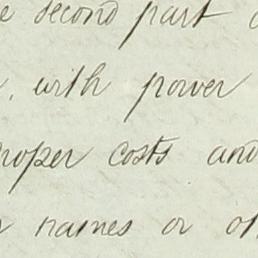 second part
, with power
proper costs and
names or